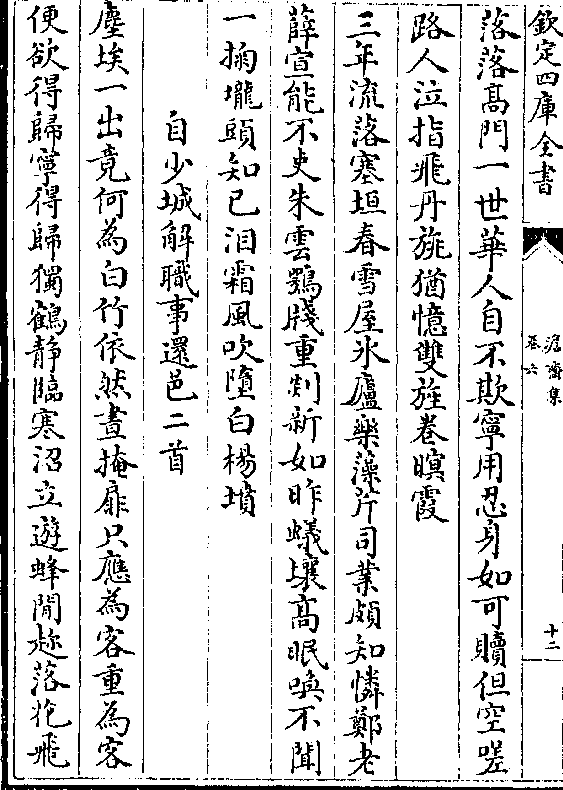 欽定四庫全書
澹齋集
卷六
十二
落落高門一世華人自不欺寧用忍身如可贖但空嗟
路人泣指飛丹旐猶憶雙旌卷暝霞
三年流落塞垣春雪屋氷廬樂藻芹司業頗知憐鄭老
薛宣能不吏朱雲鶚牋重剡新如昨蟻壤高眠喚不聞
一掬壠頭知已泪霜風吹墮白楊墳
自少城解職事還邑二首
塵埃一出竟何為白竹依然晝掩扉只應為客重為客
便欲得歸寧得歸獨鶴静臨寒沼立遊蜂閒趂落花飛